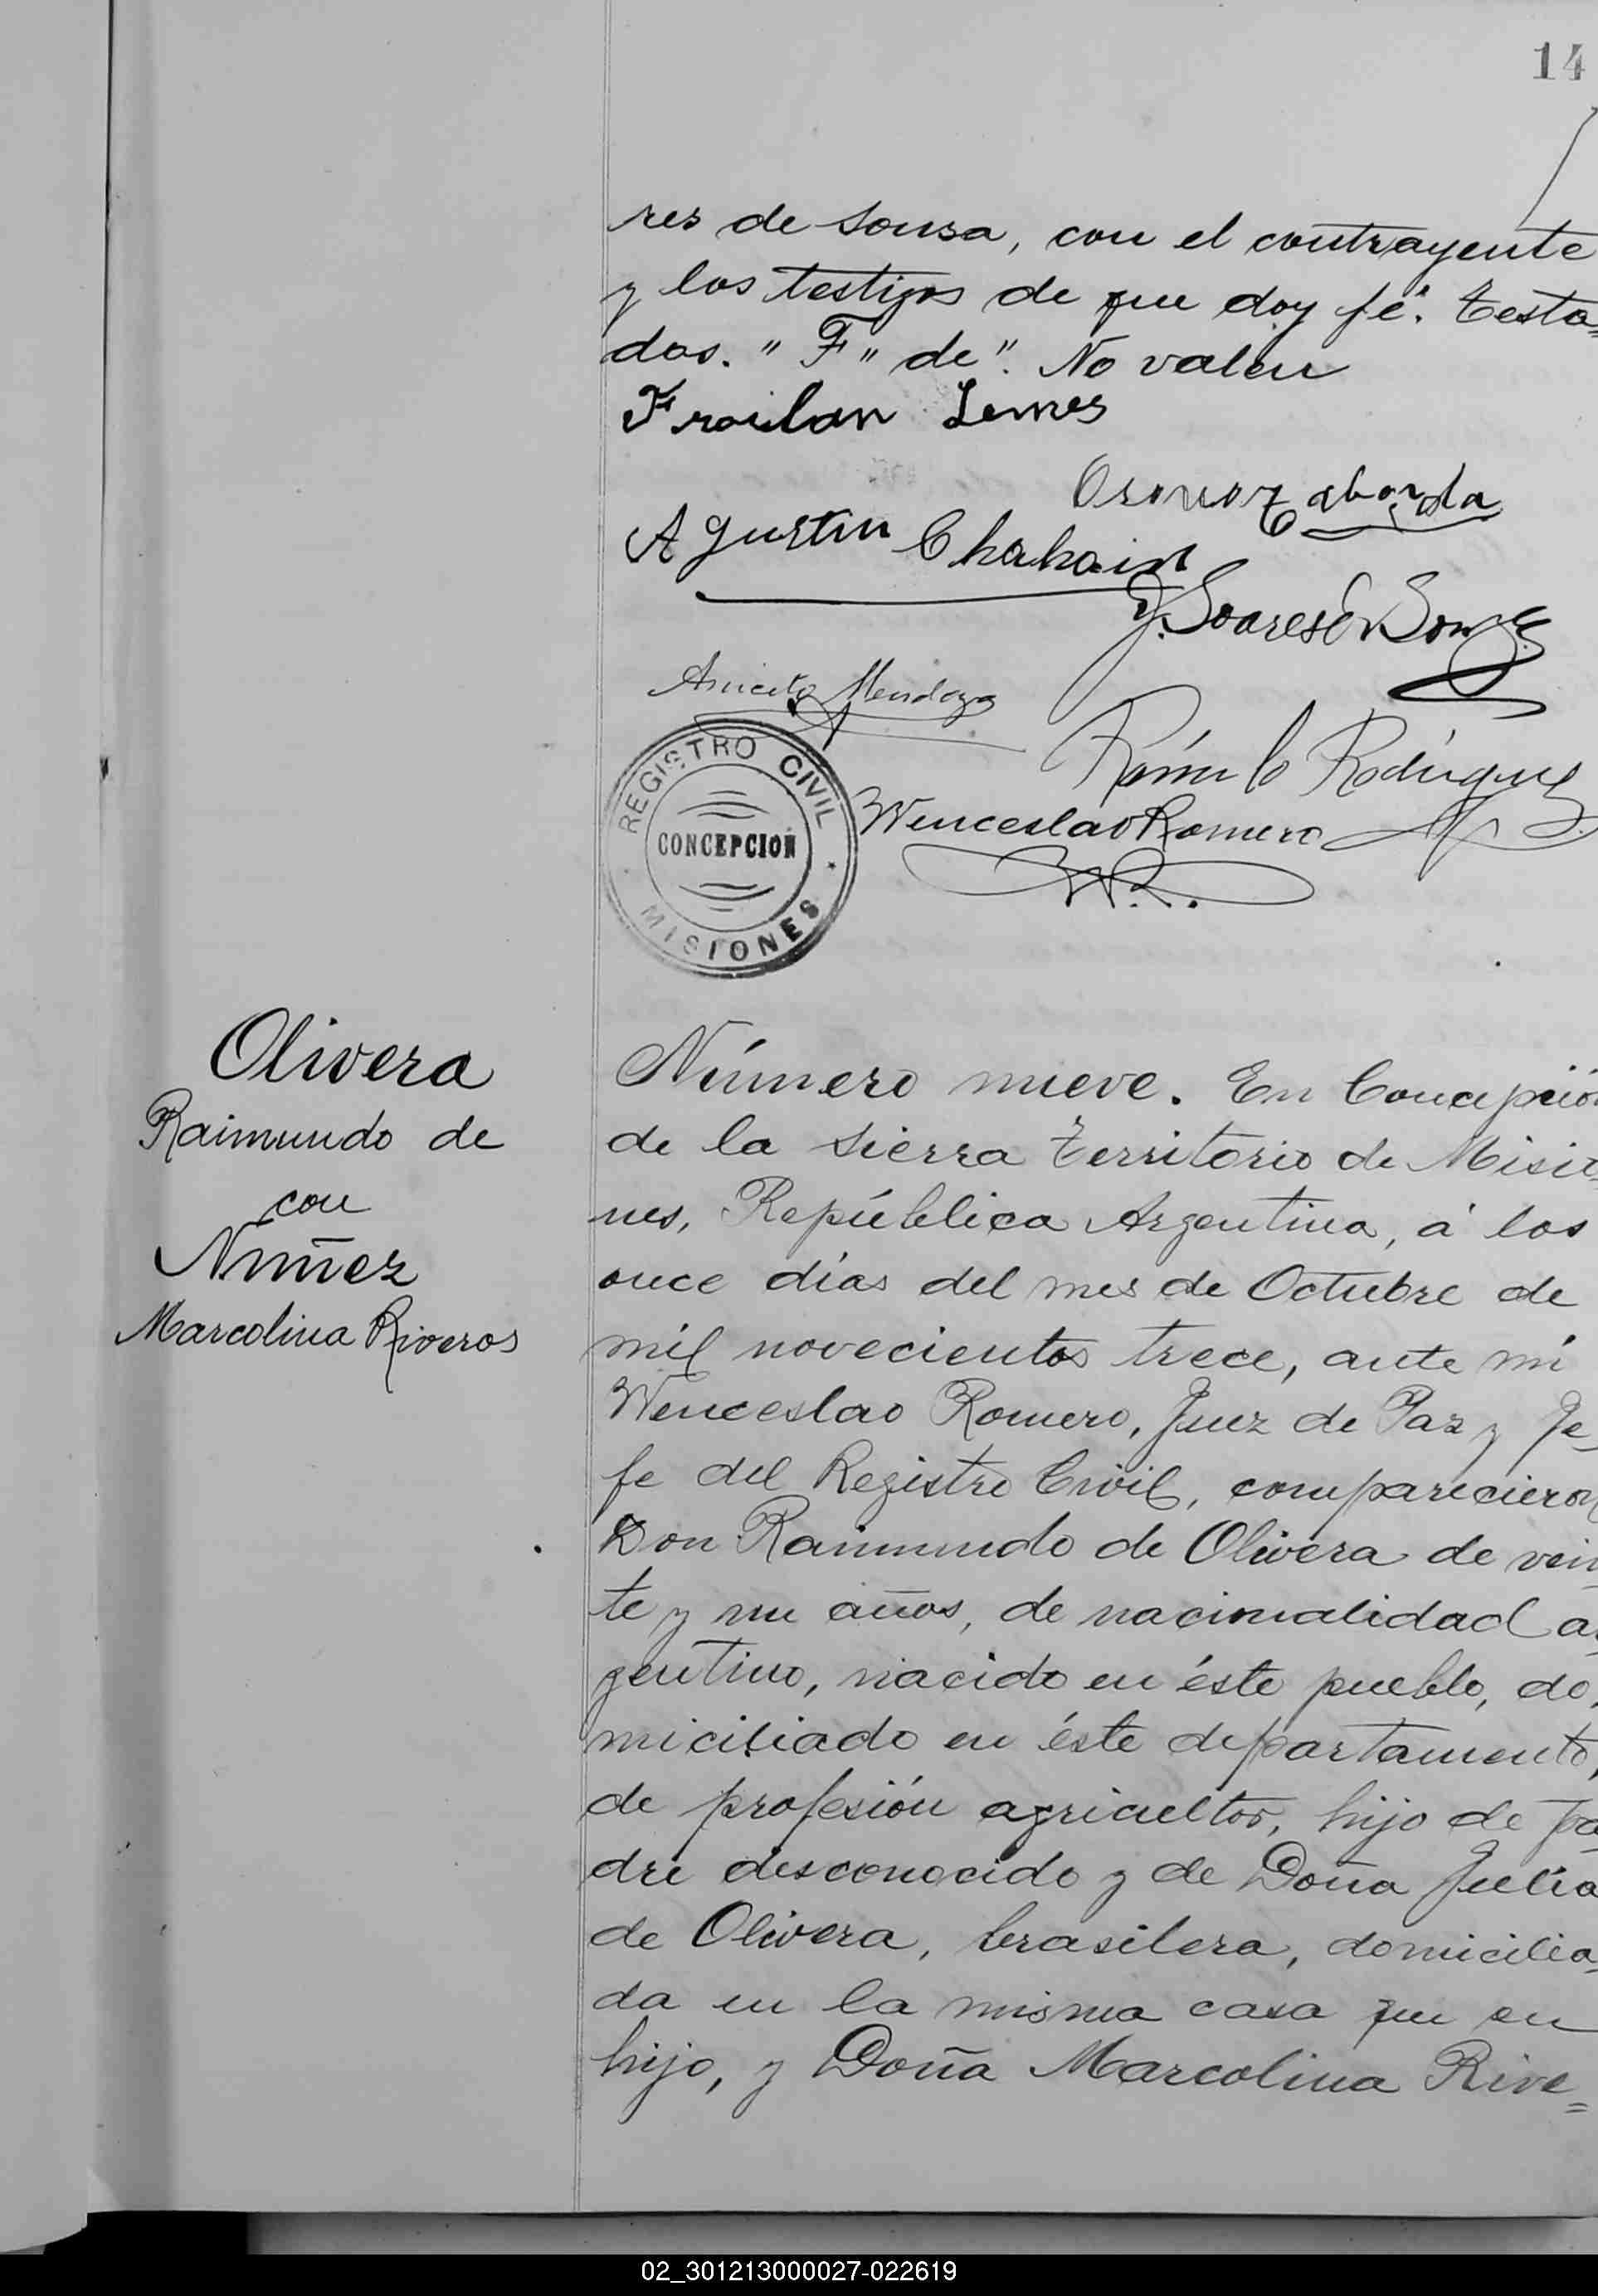 14
res de Sousa, con el contrayente
y los testigos de que doy fé". Testa=
dos. " F " de ". No valen
Froilan Lemes
Agustin Chahain
J. Soares E Souza
Aniceto Mendoza
Rómulo Rodriguez
Wenceslao Romero
W. R.
REGISTRO CIVIL
CONCEPCION
MISIONES
Olivera
Raimundo de
con
Nuñez
Marcolina Riveros
Número nueve. En Concepción
de la Sierra Territorio de Misio
nes, República Argentina, á los
once días del mes de Octubre de
mil novecientos trece, ante mí
Wenceslao Romero, Juez de Paz y Je-
fe del Registro Civil, comparecieron
Don Raimundo de Olivera de vein
te y un años, de nacionalidad ar
gentino, nacido en éste pueblo, do-
miciliado en éste departamento,
de profesión agricultor, hijo de pa
dre desconocido y de Doña Julia
de Olivera, brasilera, domicilia-
da en la misma casa que su
hijo, y Doña Marcolina Rive=
02_301213000027-022619